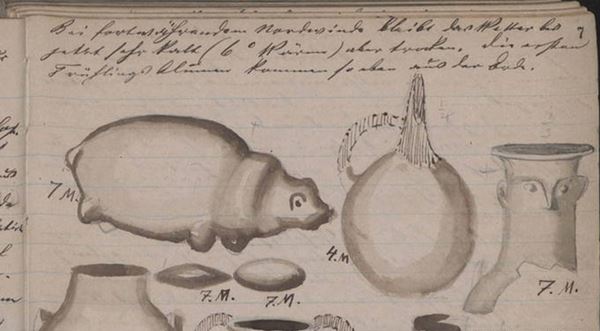 Bei fortwährendem Nordwinde bleibt das Wetter bis
jetzt sehr kalt (6° Wärme) aber trocken. Die ersten
Frühlingsblumen kommen so eben aus der Erde.
7 M.
4. M
7. M.
7. M.
7. M.